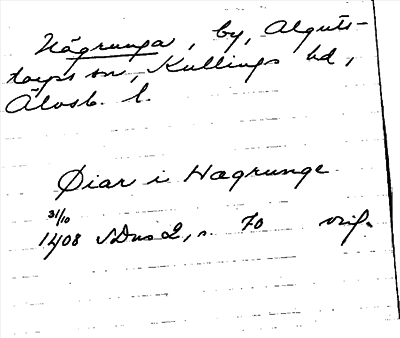 Hägrunga, by, Alguts-
torps sn, Kullings hd,
Älvsb. l.
Øiar i Hægrunge
31/10
1408 SDns 2, s. 70 orig.